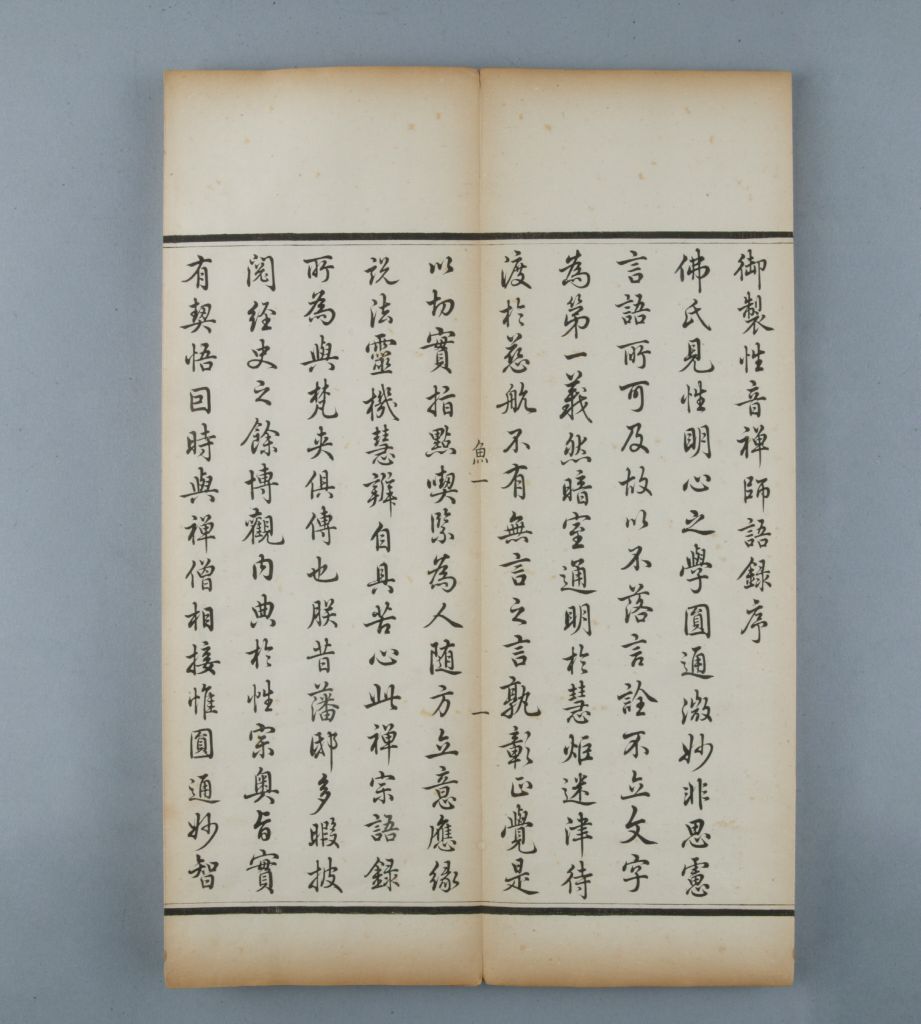 御製性音禅師語録序
佛氏見性明心之學圓通微妙非思慮
言語所可及故以不落言詮不立文字
為第一義然暗室通明於慧炬迷津待
渡於慈航不有無言之言孰彰正覺是
魚一
一
以切實指點喫緊為人随方立意應緣
説法靈機慧辯自具苦心此禅宗語録
所為與梵夹俱傳也朕昔藩邸多暇披
閱経史之餘博觀内典於性宗奥旨實
有契悟曰時與禅僧相接惟圓通妙智